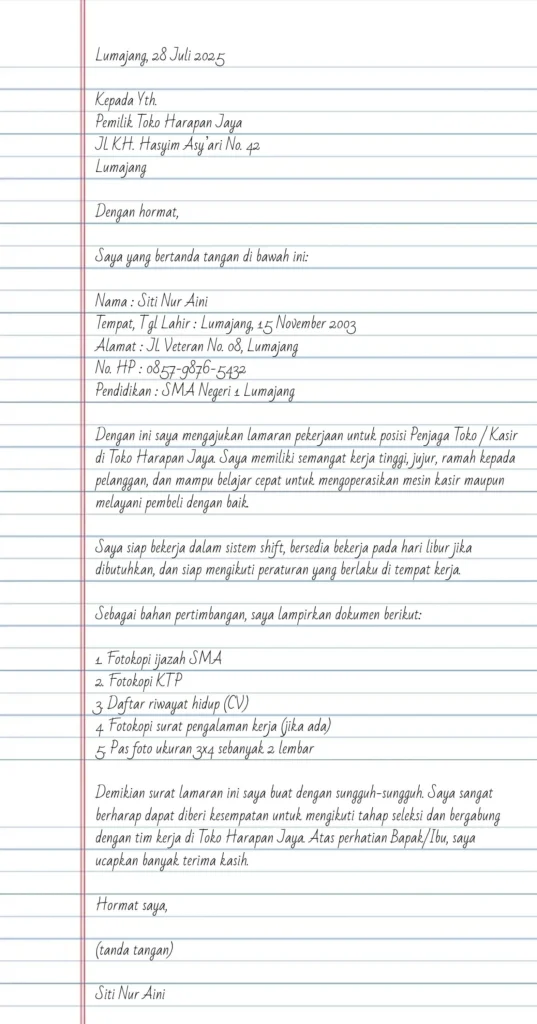 Lumajang, 28 Juli 2025
Kepada Yth.
Pemilik Toko Harapan Jaya
Jl. KH. Hasyim Asy'ari No. 42
Lumajang
Dengan hormat,
Saya yang bertanda tangan di bawah ini:
Nama : Siti Nur Aini
Tempat, Tgl Lahir : Lumajang, 15 November 2003
Alamat : Jl. Veteran No. 08, Lumajang
No. HP : 0857-9876-5432
Pendidikan : SMA Negeri 1 Lumajang
Dengan ini saya mengajukan lamaran pekerjaan untuk posisi Penjaga Toko / Kasir
di Toko Harapan Jaya. Saya memiliki semangat kerja tinggi, jujur, ramah kepada
pelanggan, dan mampu belajar cepat untuk mengoperasikan mesin kasir maupun
melayani pembeli dengan baik.
Saya siap bekerja dalam sistem shift, bersedia bekerja pada hari libur jika
dibutuhkan, dan siap mengikuti peraturan yang berlaku di tempat kerja.
Sebagai bahan pertimbangan, saya lampirkan dokumen berikut:
1. Fotokopi ijazah SMA
2. Fotokopi KTP
3. Daftar riwayat hidup (CV)
4. Fotokopi surat pengalaman kerja (jika ada)
5. Pas foto ukuran 3x4 sebanyak 2 lembar
Demikian surat lamaran ini saya buat dengan sungguh-sungguh. Saya sangat
berharap dapat diberi kesempatan untuk mengikuti tahap seleksi dan bergabung
dengan tim kerja di Toko Harapan Jaya. Atas perhatian Bapak/Ibu, saya
ucapkan banyak terima kasih.
Hormat saya,
(tanda tangan)
Siti Nur Aini